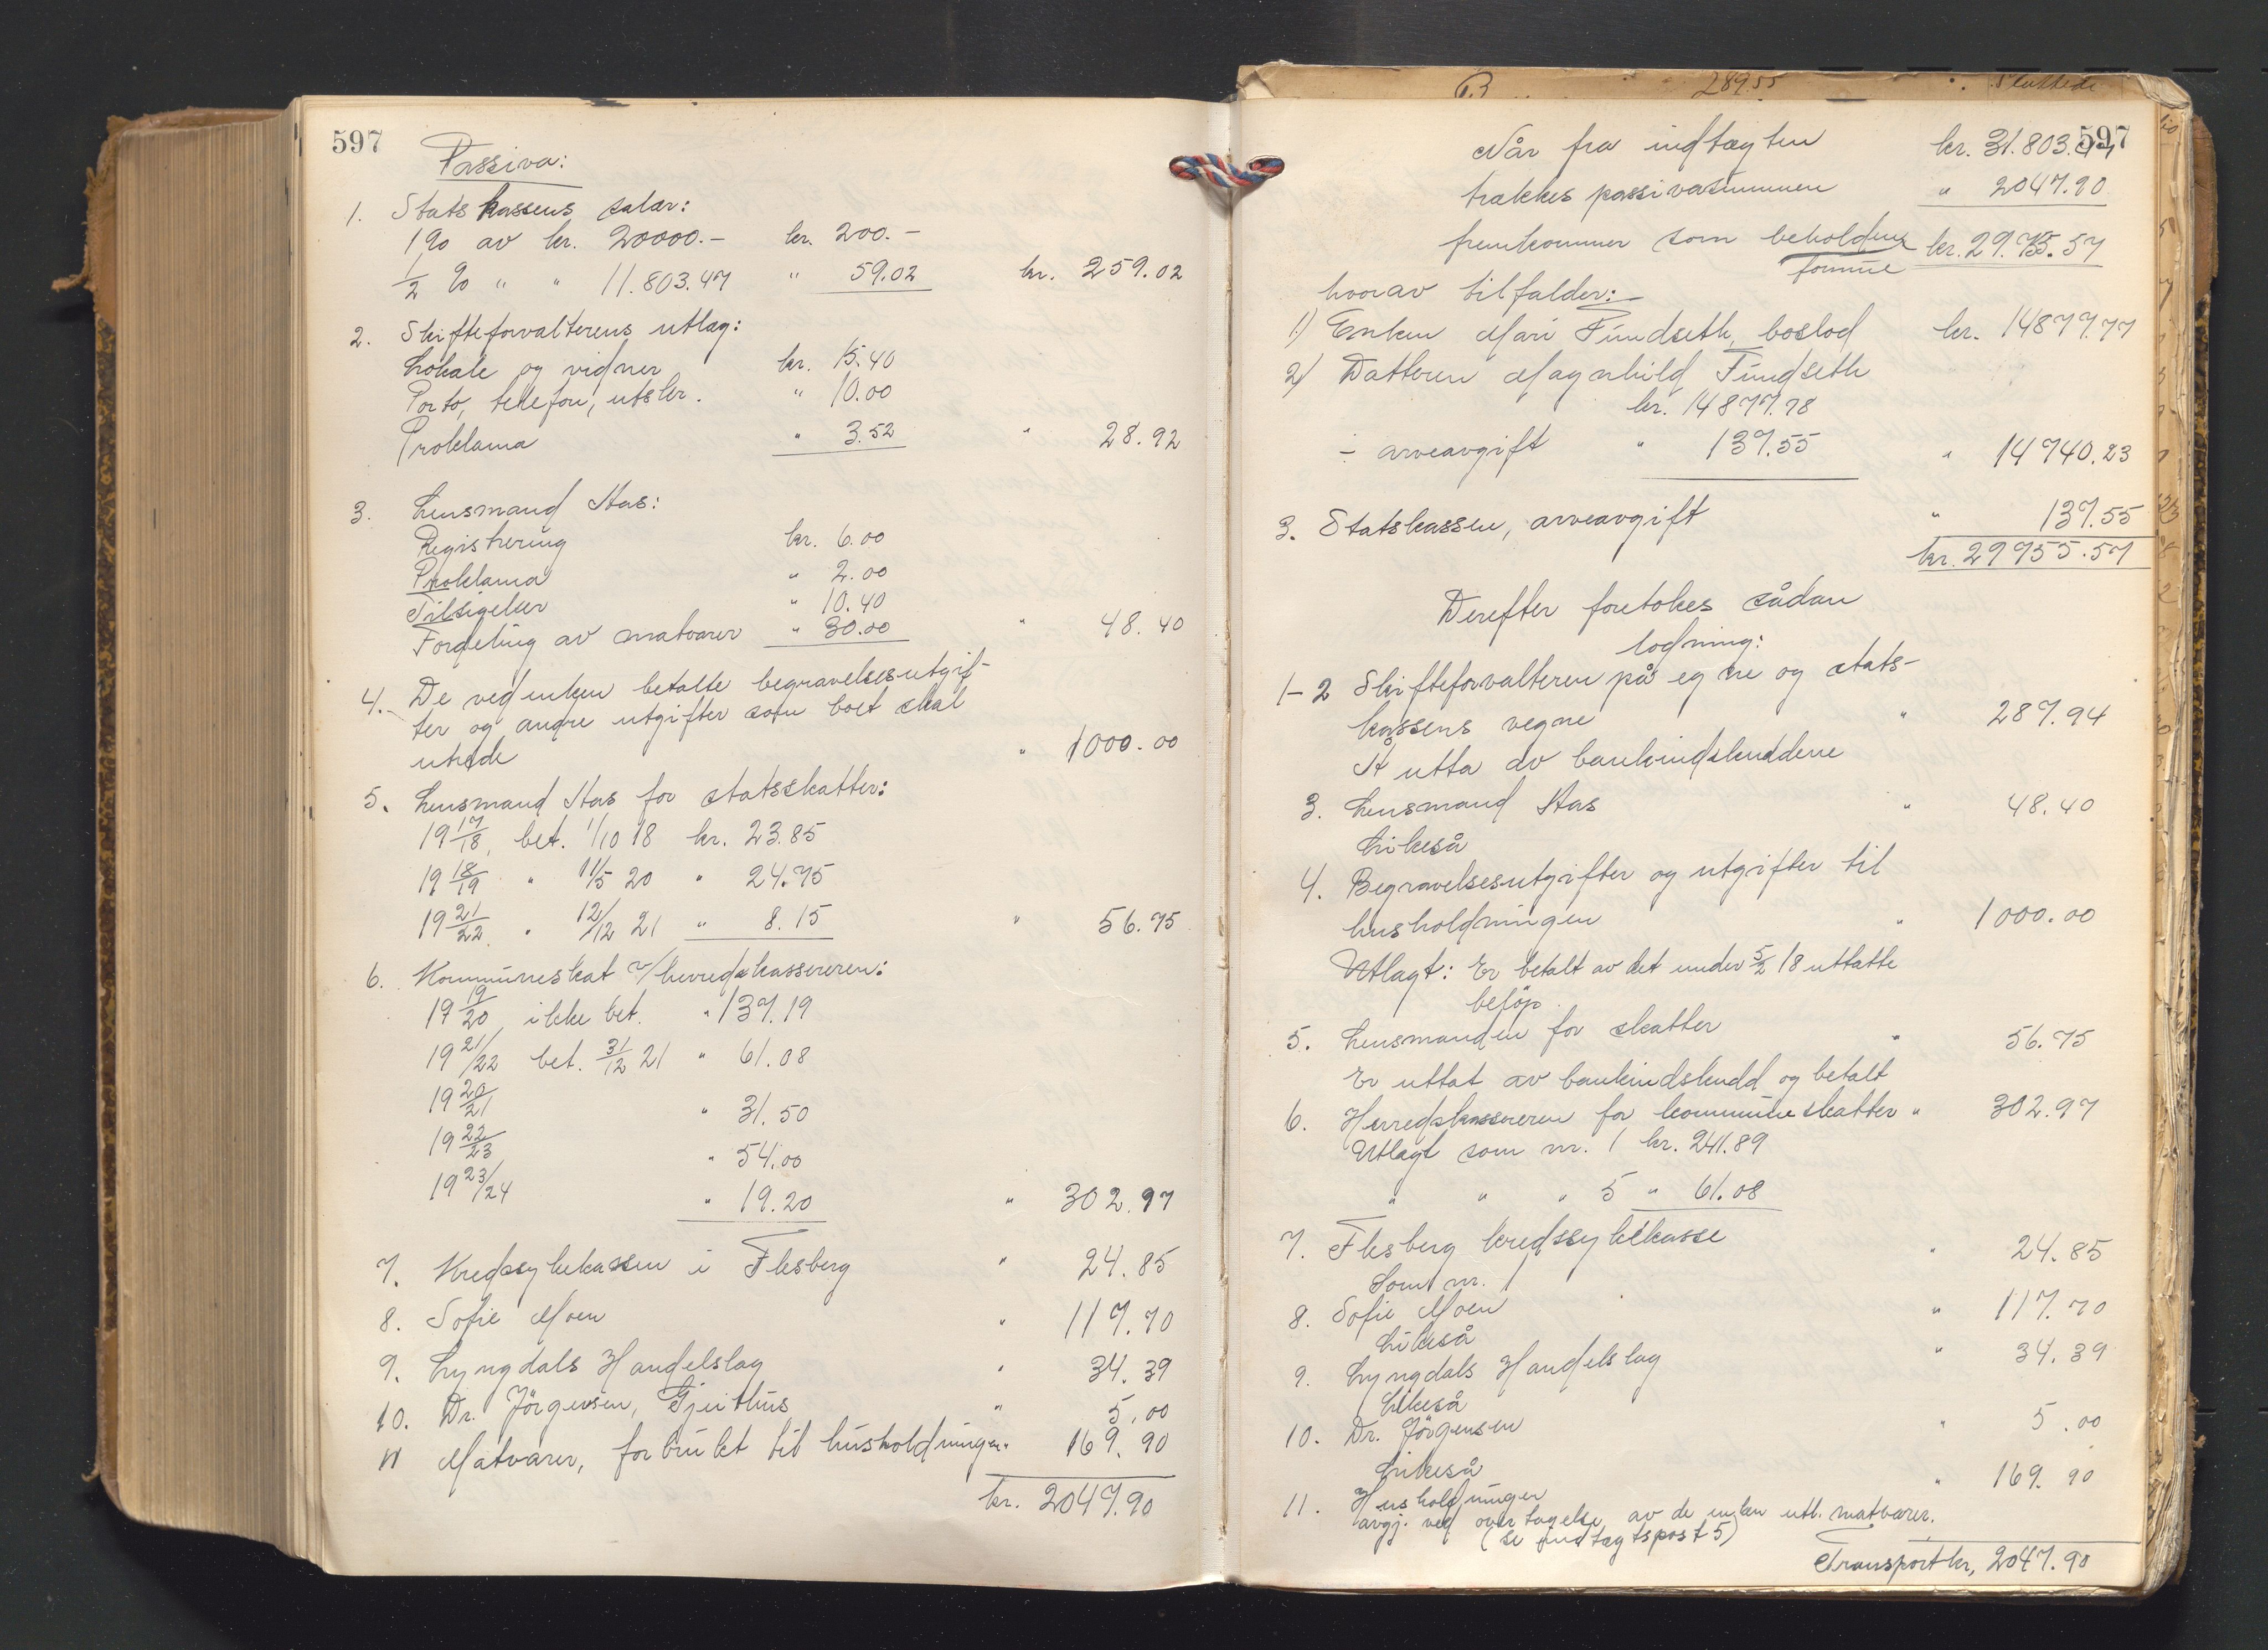 597
Passiva:
1. Statskassens salær:
1 % av kr. 20000.- kr. 200.-
1/2 % " " 11.803.47 " 59.02 kr. 259.02
2. Skifteforvalterens utlæg:
Lokale og vidner kr. 15.40
Porto, telefon, utskr. " 10.00
Proklama " 3.52 " 28.92
3. Lensmand Aas:
Registrering kr. 6.00
Proklama " 2.00
Tilsigelser " 10.40
Fordeling av matvarer " 30.00 " 48.40
4. De ved enken betalte begravelsesutgif-
ter og andre utgifter som boet skal
utrede " 1000.00
5. Lensmand Aas for statsskatter:
19 17/18, bet. 1/10 18 kr. 23.85
19 18/19 " 11/5 20 " 24.75
19 21/22 " 12/12 21 " 8.15 " 56.75
6. Kommuneskat v/herredskassereren:
19 19/20 ikke bet. " 137.19
19 21/22 bet. 31/12 21 " 61.08
19 20/21 " 31.50
19 22/23 " 54.00
19 23/24 " 19.20 " 302.97
7. Kredssykekassen i Flesberg " 24.85
8. Sofie Moen " 117.70
9. Lyngdals Handelslag " 34.39
10. Dr. Jörgensen, Gjeithus " 5.00
11 Matvarer, forbruket til husholdningen " 169.90
kr. 2047.90
B 28955
597
Når fra indtægten kr. 31.803.47
trækkes passivasummen " 2047.90
fremkommer som beholdne formue kr. 29.755.57
hvorav tilfalder:
1) Enken Mari Fundseth, boslod kr. 14877.77
2) Datteren Magnhild Fundseth
kr. 14877.78
÷ arveavgift " 137.55 " 14740.23
3. Statskassen, arveavgift " 137.55
kr. 29755.57
Derefter foretokes sådan
lodning:
1-2 Skifteforvalteren på egne og stats-
kassens vegne " 287.94
At utta av bankindskuddene
3. Lensmand Aas " 48.40
Likeså
4. Begravelsesutgifter og utgifter til
husholdningen " 1000.00
Utlagt: Er betalt av det under 5/2 18 uttatte
beløp.
5. Lensmanden for skatter " 56.75
Er uttat av bankindskudd og betalt
6. Herredskassereren for kommuneskatter " 302.97
Utlagt som nr. 1 kr. 241.89
" " " 5 " 61.08
7. Flesberg kredssykekasse " 24.85
Som nr. 1
8. Sofie Moen " 117.70
Likeså
9. Lyngdals Handelslag " 34.39
Likeså
10. Dr. Jörgensen " 5.00
Likeså
11. Husholdningen " 169.90
avgj. ved overtagelse av de enken utl. matvarer.
(se indtægtspost 5)
Transport kr. 2047.90